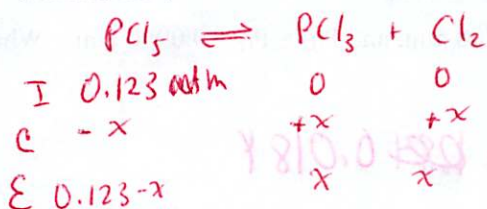 PCl5 ⇌ PCl3 + Cl2
I 0.123 atm 0 0
C -x +x +x
0.0187
E 0.123-x x x